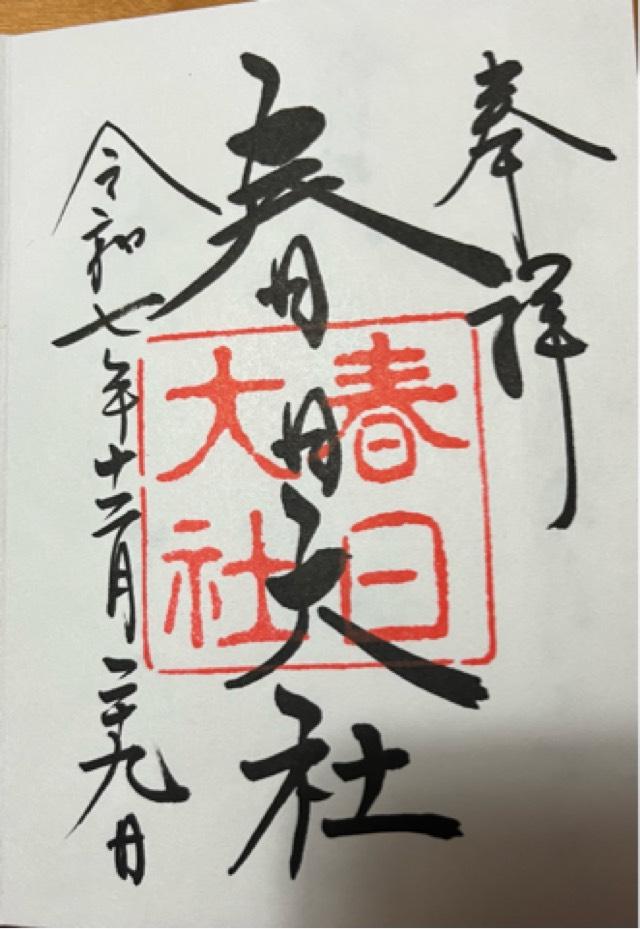 奉拝
春日大社
春日
大社
令和七年十二月二十九日